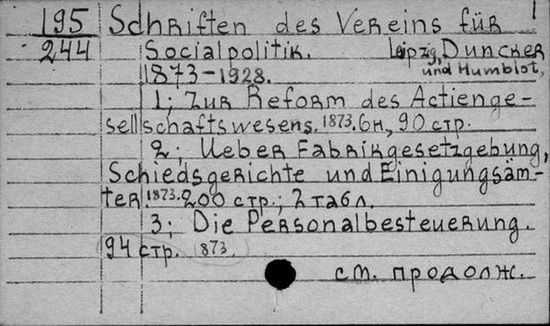 195 Schriften des Vereins für
244 Socialpolitik. Leipzig, Duncker
und Humblot,
1873-1928.
1; Zur Reform des Actienge-
sellschaftswesens. 1873. 6н, 90 стр.
2; Ueber Fabrikgesetzgebung,
Schiedsgerichte und Einigungsäm-
ter 1873. 200 стр.; 2 табл.
3; Die Personalbesteuerung.
94 стр. 1873.
см. продолж.